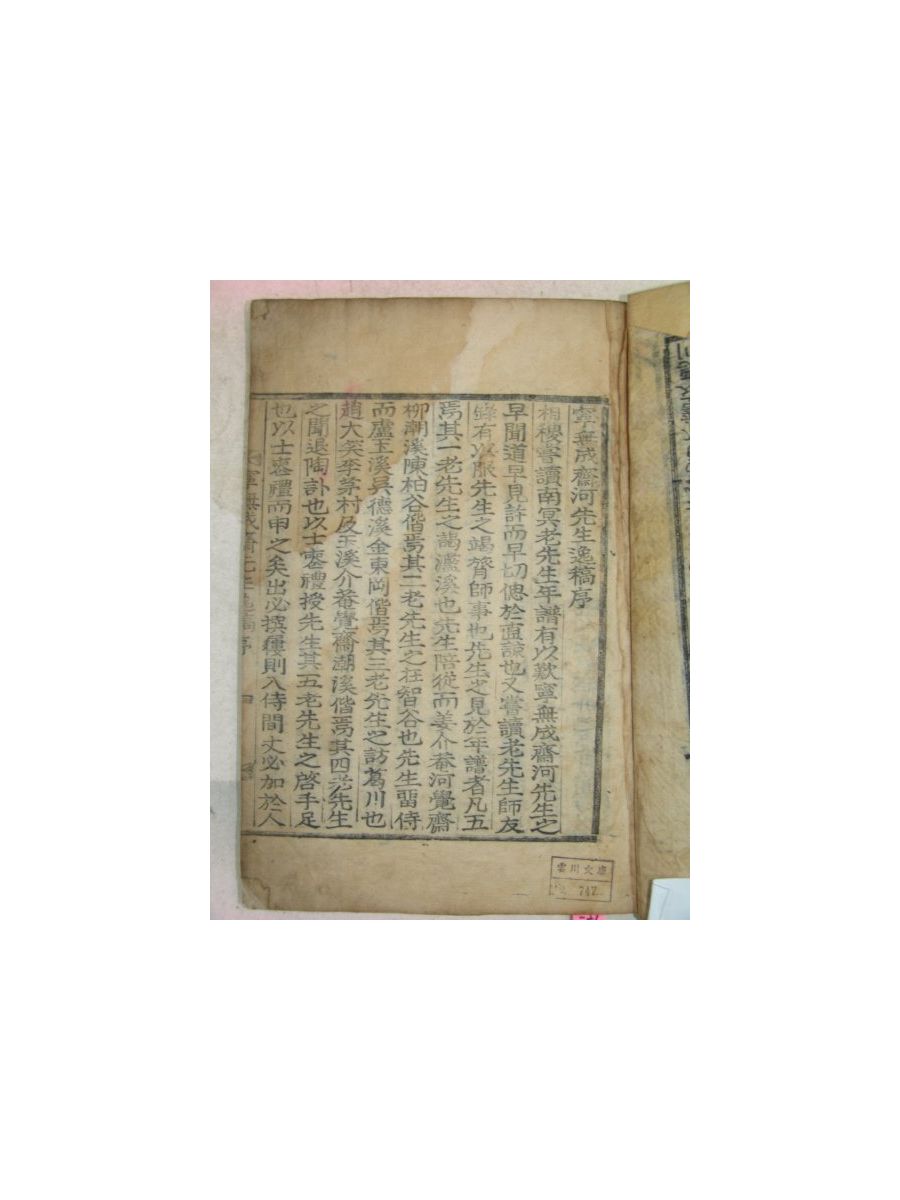 寧無成齋河先生逸稿序
相稷嘗讀南冥老先生年譜有以歎寧無成齋河先生之
早聞道早見許而早切偲於函諒也又嘗讀老先生師友
錄有以服先生之竭膂師事也先生之見於年譜者凡五
焉其一老先生之謁濂溪也先生陪從而姜介菴河覺齋
柳潮溪陳柏谷偕焉其二老先生之在智谷也先生留侍
而盧玉溪吳德溪金東岡偕焉其三老先生之訪葛川也
趙大笑李茅村及玉溪介菴覺齋潮溪偕焉其四老先生
之聞退陶訃也以士喪禮授先生其五老先生之啓手足
也以士喪禮而申之矣出必撰屨則入侍間丈必加於人
寧無成齋先生逸稿序
雲川文庫
747